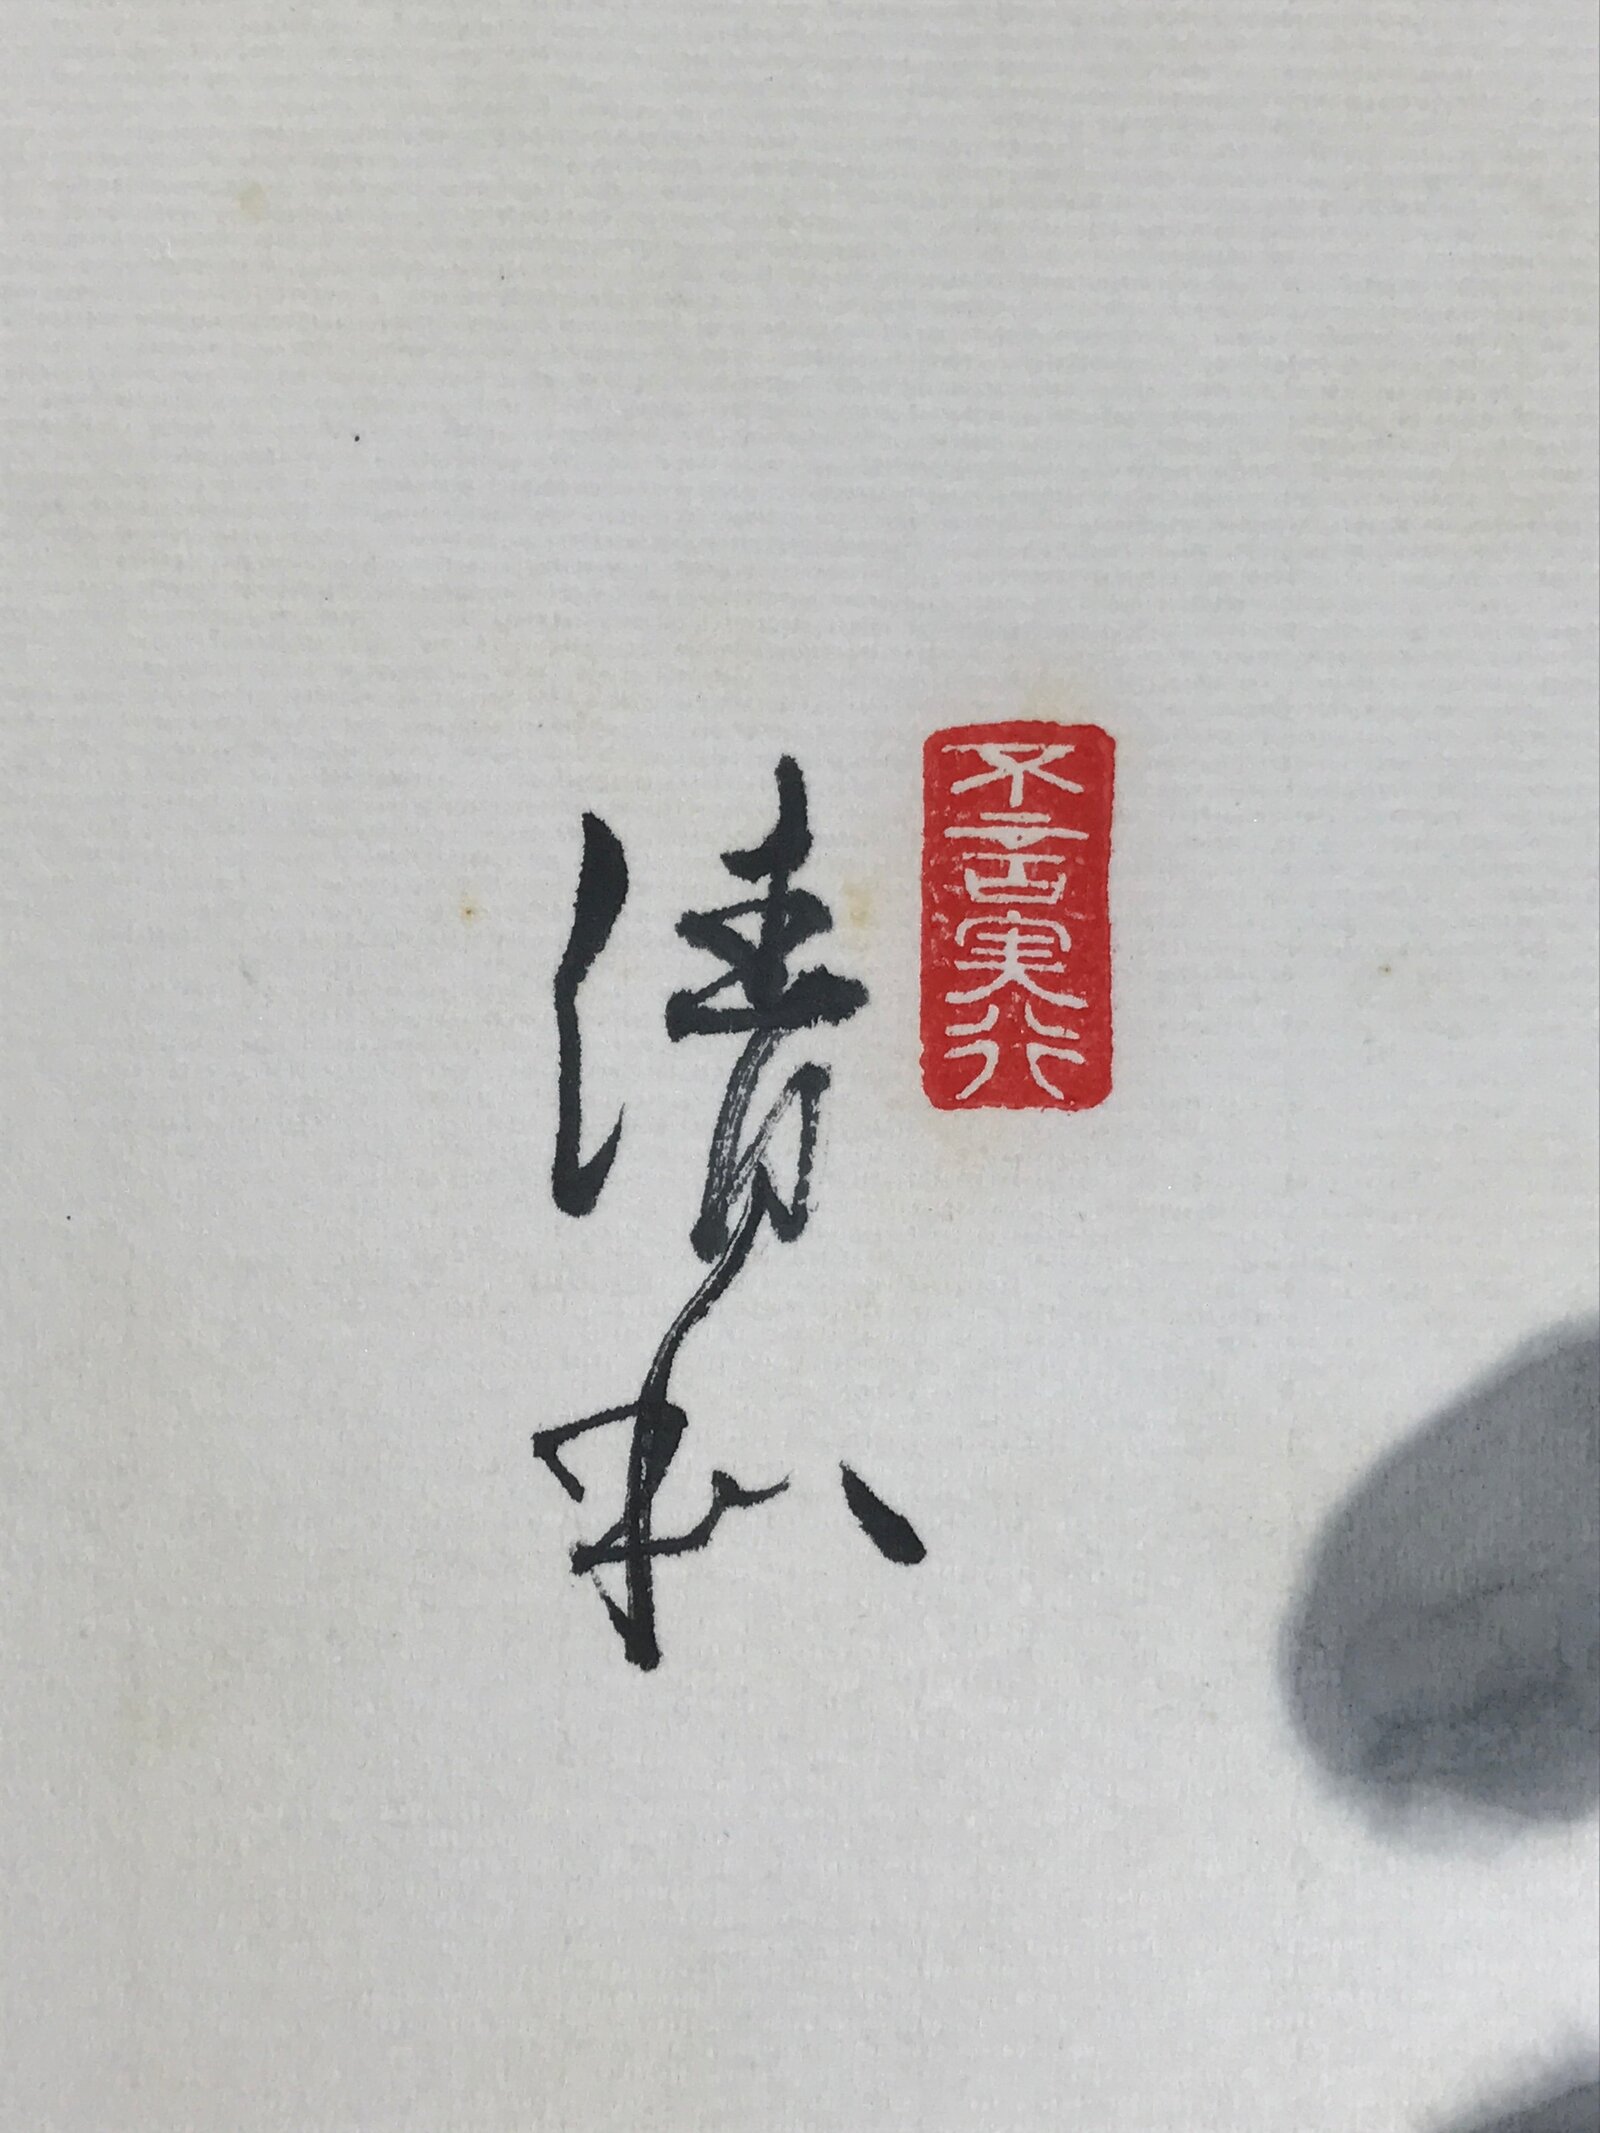 不言実行
清